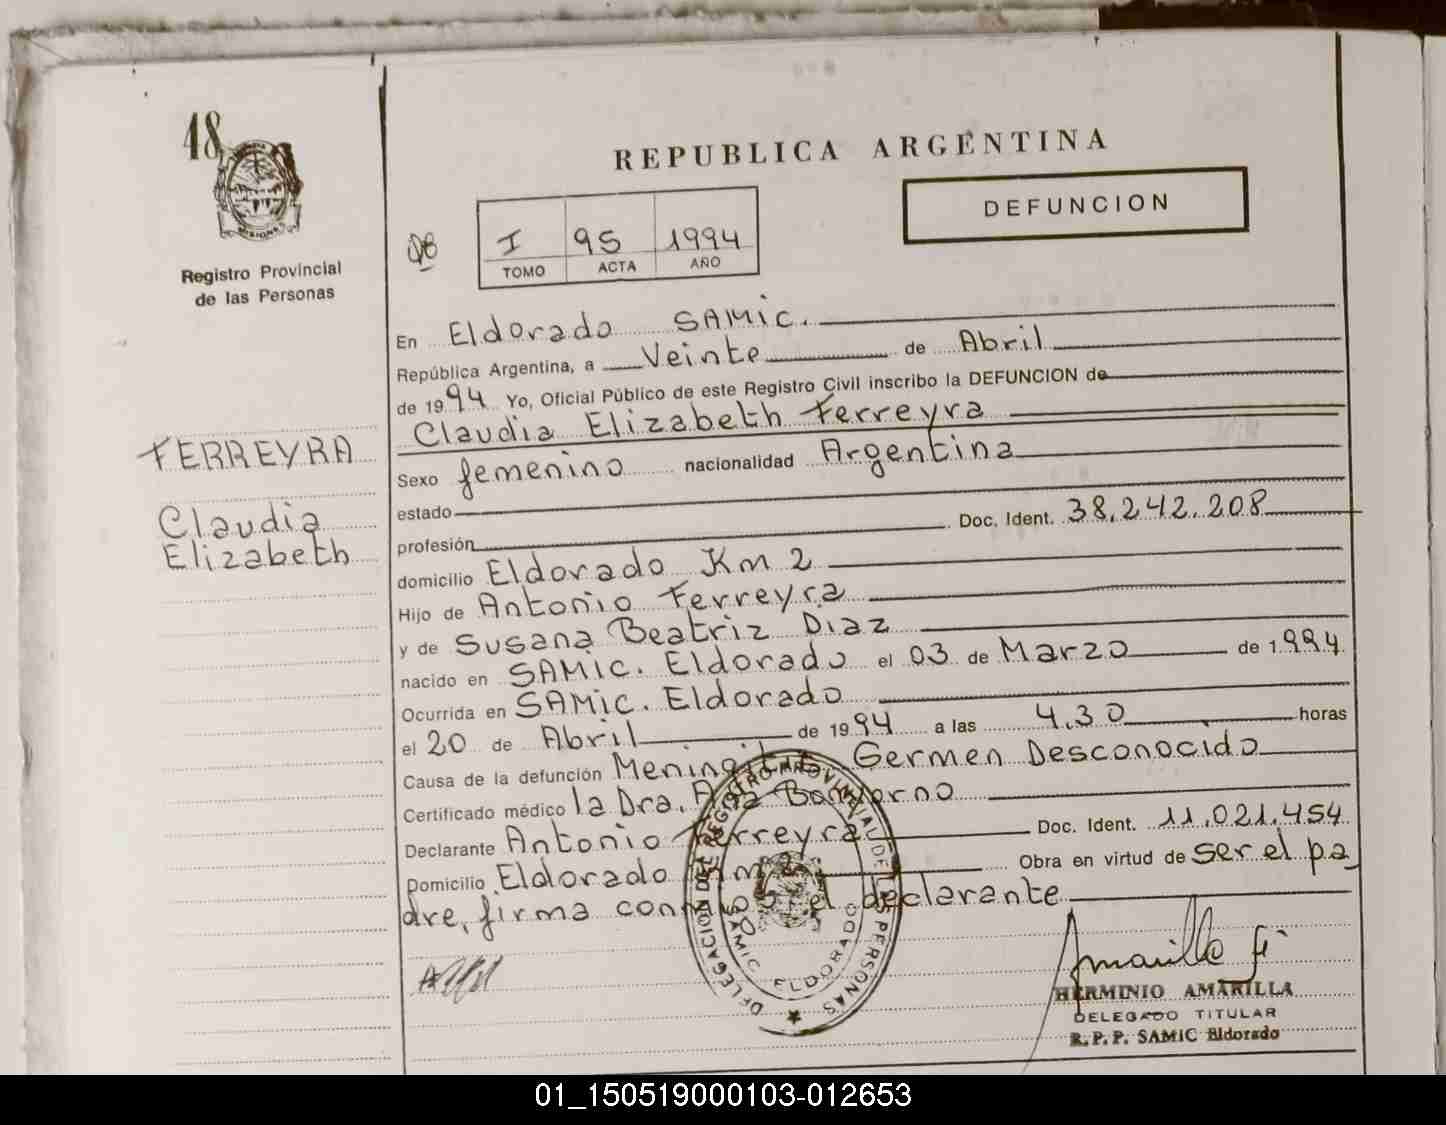 48
REPUBLICA ARGENTINA
DEFUNCION
I 95 1994
TOMO ACTA AÑO
Registro Provincial
de las Personas
En Eldorado SAMIC.
República Argentina, a Veinte de Abril
de 1994 Yo, Oficial Público de este Registro Civil inscribo la DEFUNCION de
Claudia Elizabeth Ferreyra
FERREYRA
Claudia
Elizabeth
Sexo femenino nacionalidad Argentina
estado
profesión Doc. Ident. 38.242.208
domicilio Eldorado Km 2
Hijo de Antonio Ferreyra
y de Susana Beatriz Diaz
nacido en SAMIC. Eldorado el 03 de Marzo de 1.994
Ocurrida en SAMIC. Eldorado
el 20 de Abril de 1994 a las 4.30 horas
Causa de la defunción Meningitis Germen Desconocido
Certificado médico la Dra.
Declarante Antonio Ferreyra Doc. Ident. 11.021.454
Domicilio Eldorado Km 2 Obra en virtud de ser el pa
dre, firma conmigo el declarante
DELEGACION DEL REGISTRO PROVINCIAL DE LAS PERSONAS
SAMIC ELDORADO
Amarilla
HERMINIO AMARILLA
DELEGADO TITULAR
R. P. P. SAMIC Eldorado
01_150519000103-012653